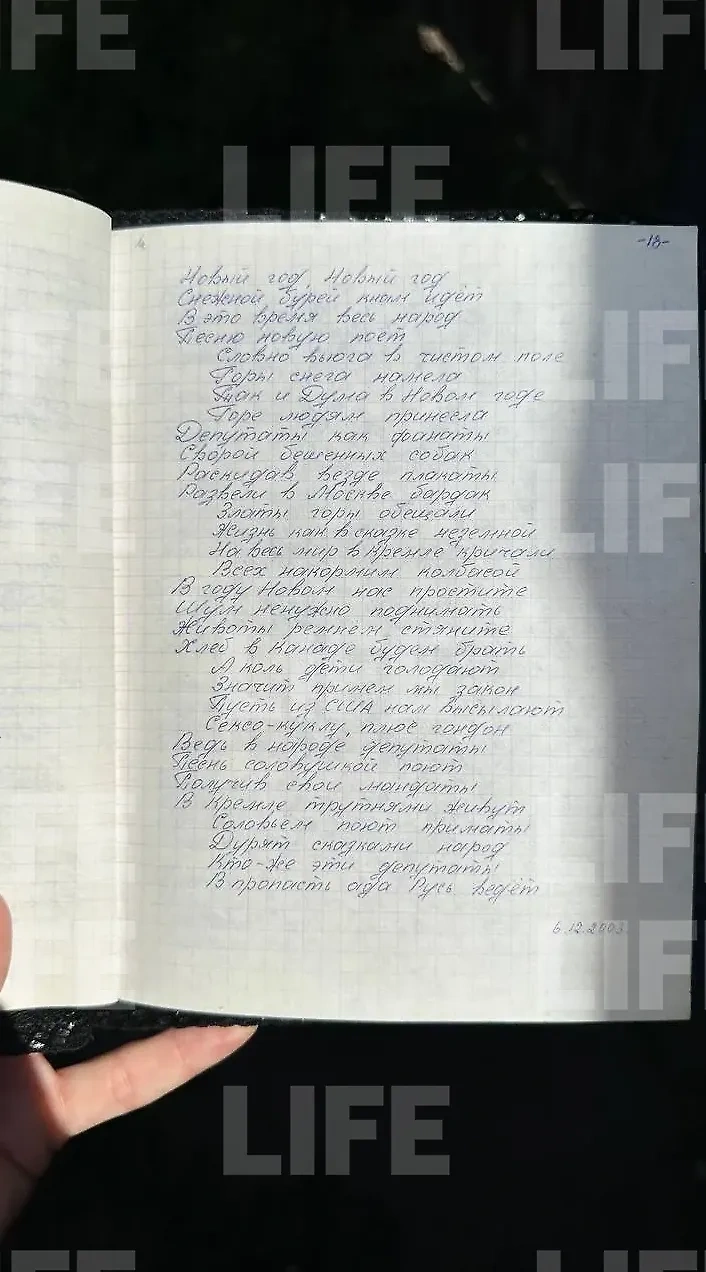 LIFE
LIFE
LIFE
-18-
Новый год, Новый год
Снежной бурей к нам идёт
В это время весь народ
Песню новую поёт
Словно вьюга в чистом поле
Горы снега намела
Так и Дума в Новом годе
Горе людям принесла
Депутаты как фанаты
Сворой бешенных собак
Раскидав везде плакаты
Развели в Москве бардак
Златы горы обещали
Жизнь как в сказке неземной
На весь мир в Кремле кричали
Всех накормим колбасой
В году Новом нас простите
Шум ненужно поднимать
Животы ремнём стяните
Хлеб в Канаде будем брать
А коль дети голодают
Значит примем мы закон
Пусть из США нам высылают
Сексо-куклу, плюс гондон
Ведь в народе депутаты
Песнь соловушкой поют
Получив свои мандаты
В Кремле трутнями живут
Соловьём поют приматы
Дурят сказками народ
Кто-же эти депутаты
В пропасть ада Русь ведёт
6.12.2003
LIFE
LIFE
LIFE
LIFE
LIFE
LIFE
LIFE